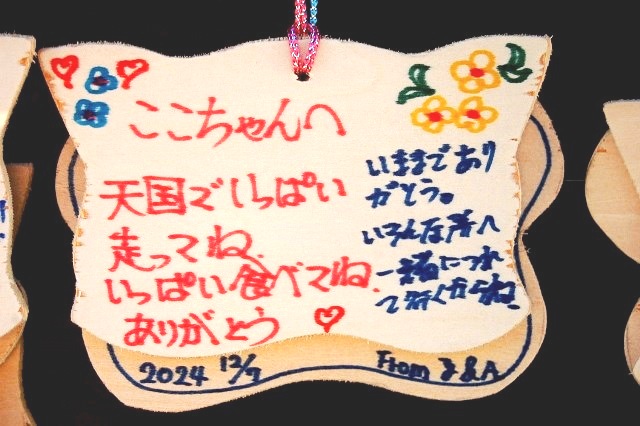 ここちゃんへ
天国でいっぱい
走ってね、
いっぱい食べてね、
ありがとう
いままであり
がとう。
いろんな所へ
一緒につれ
て行くからね、
2024 12/7
From & A